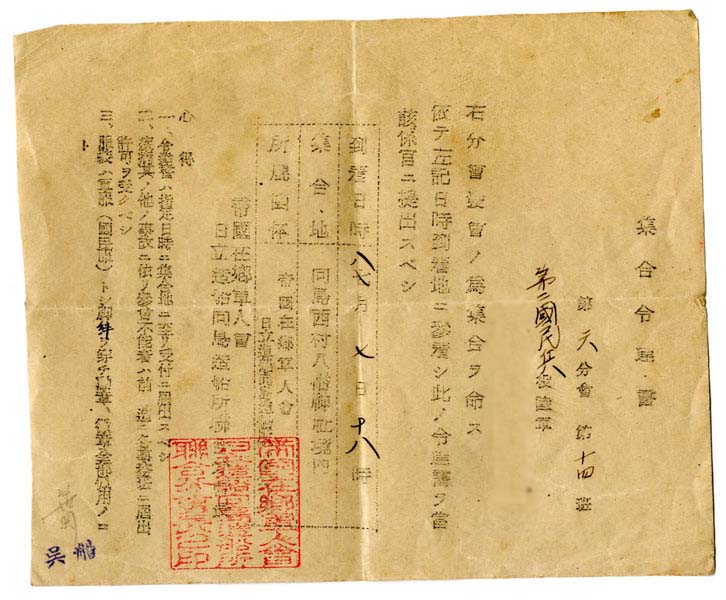 集合令達書
第六分會 第十四班
第二國民兵役陸軍
右分會發會ノ爲集合ヲ命ス
依テ左記日時到着地ニ參着シ此ノ令達書ヲ當
該係官ニ提出スベシ
到着日時 八月 七日 十八時
集合地 向島西村八幡神社境内
所屬團体 帝國在鄕軍人會
日立造船向島造船所
帝國在鄕軍人會
日立造船向島造船所聯合分會長
帝國在鄕軍人會
日立造船向島造船所
聯合分會長之印
心得
一、令達者ハ指定日時ニ集合地ニ至リ受付ニ届出スベシ
二、疾病其ノ他ノ事故ニ依リ參會不能者ハ前
許可ヲ受クベシ
三、服裝ハ軍服(國民服)トシ脚絆ヲ穿チ
着用ノコ
ト
吳船